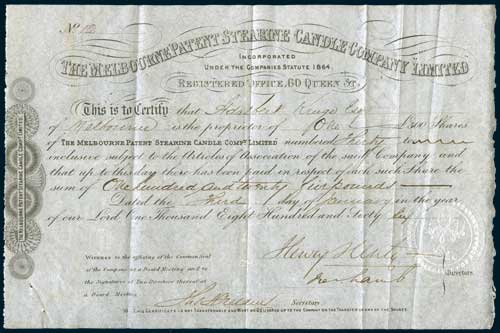 No
THE MELBOURNE PATENT STEARINE CANDLE COMPANY LIMITED
INCORPORATED
UNDER THE COMPANIES STATUTE 1864.
REGISTERED OFFICE, 60 QUEEN St.
This is to Certify that Esq
of Melbourne is the proprietor of One £500 Shares
of THE MELBOURNE PATENT STEARINE CANDLE COMPY. LIMITED numbered
inclusive subject to the Articles of Association of the said Company and
that up to this day there has been paid in respect of each such Share the
sum of One hundred and twenty five pounds
Dated the Third day of January in the year
of our Lord One Thousand Eight Hundred and Sixty Six
WITNESS to the affixing of the Common Seal
of the Company at a Board Meeting and to
the Signatures of Two Directors thereof at
a Board Meeting
Henry
Directors.
Secretary
THIS CERTIFICATE IS NOT TRANSFERABLE AND MUST BE DELIVERED UP TO THE COMPANY ON THE TRANSFER OF ANY OF THE SHARES